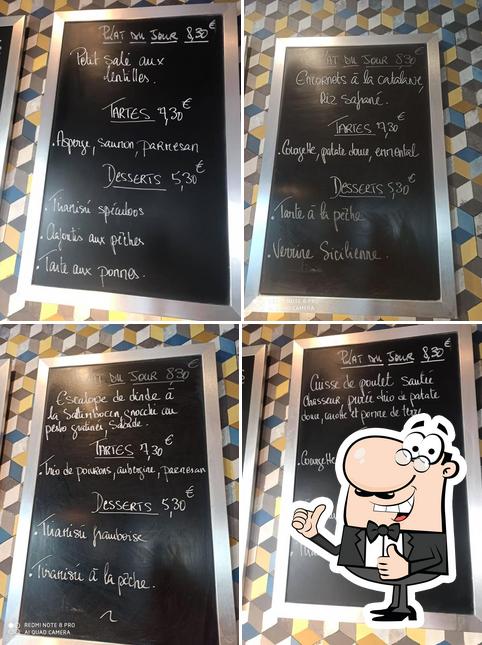 PLAT DU JOUR 8,30€
Petit Salé aux
lentilles.
TARTES 7,30€
. Asperge, saumon, parmesan
DESSERTS 5,30€
. Tiramisú spéculoos
. Clafoutis aux pêches
. Tarte aux pommes.
PLAT DU JOUR 8,30€
Encornets à la catalane,
Riz safrané.
TARTES 7,30€
. Courgette, patate douce, emmental
DESSERTS 5,30€
. Tarte à la pêche
. Verrine Sicilienne.
REDMI NOTE 8 PRO
PLAT DU JOUR 8,30€
Escalope de dinde à
la Saltimbocca, gnocchi au
pesto gratinés, Salade.
TARTES 7,30€
. Trio de poivrons, aubergine, parmesan
DESSERTS 5,30€
. Tiramisú framboise
. Tiramisú à la pêche.
REDMI NOTE 8 PRO
AI QUAD CAMERA
PLAT DU JOUR 8,30€
Cuisse de poulet sautée
chasseur, purée trio de patate
douce, carotte et pomme de terre
. Courgette